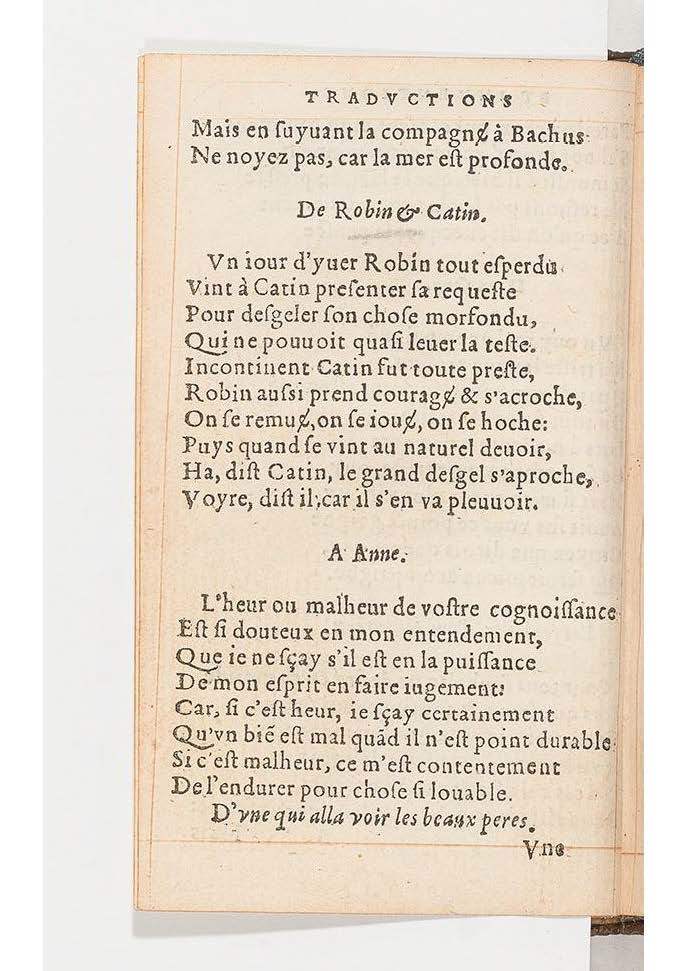 TRADVCTIONS
Mais en ſuyuant la compagnɇ à Bachus
Ne noyez pas, car la mer eſt profonde.
De Robin & Catin.
Vn iour d'yuer Robin tout eſperdu
Vint à Catin preſenter ſa requeſte
Pour deſgeler ſon choſe morfondu,
Qui ne pouuoit quaſi leuer la teſte.
Incontinent Catin fut toute preſte,
Robin auſsi prend couragɇ & s'acroche,
On ſe remuɇ, on ſe iouɇ, on ſe hoche:
Puys quand ſe vint au naturel deuoir,
Ha, diſt Catin, le grand deſgel s'aproche,
Voyre, diſt il, car il s'en va pleuuoir.
A Anne.
L'heur ou malheur de voſtre cognoiſſance
Eſt ſi douteux en mon entendement,
Que ie ne ſçay s'il eſt en la puiſſance
De mon eſprit en faire iugement:
Car, ſi c'eſt heur, ie ſçay certainement
Qu'vn biẽ eſt mal quãd il n'eſt point durable
Si c'eſt malheur, ce m'eſt contentement
De l'endurer pour choſe ſi louable.
D'vne qui alla voir les beaux peres.
Vne